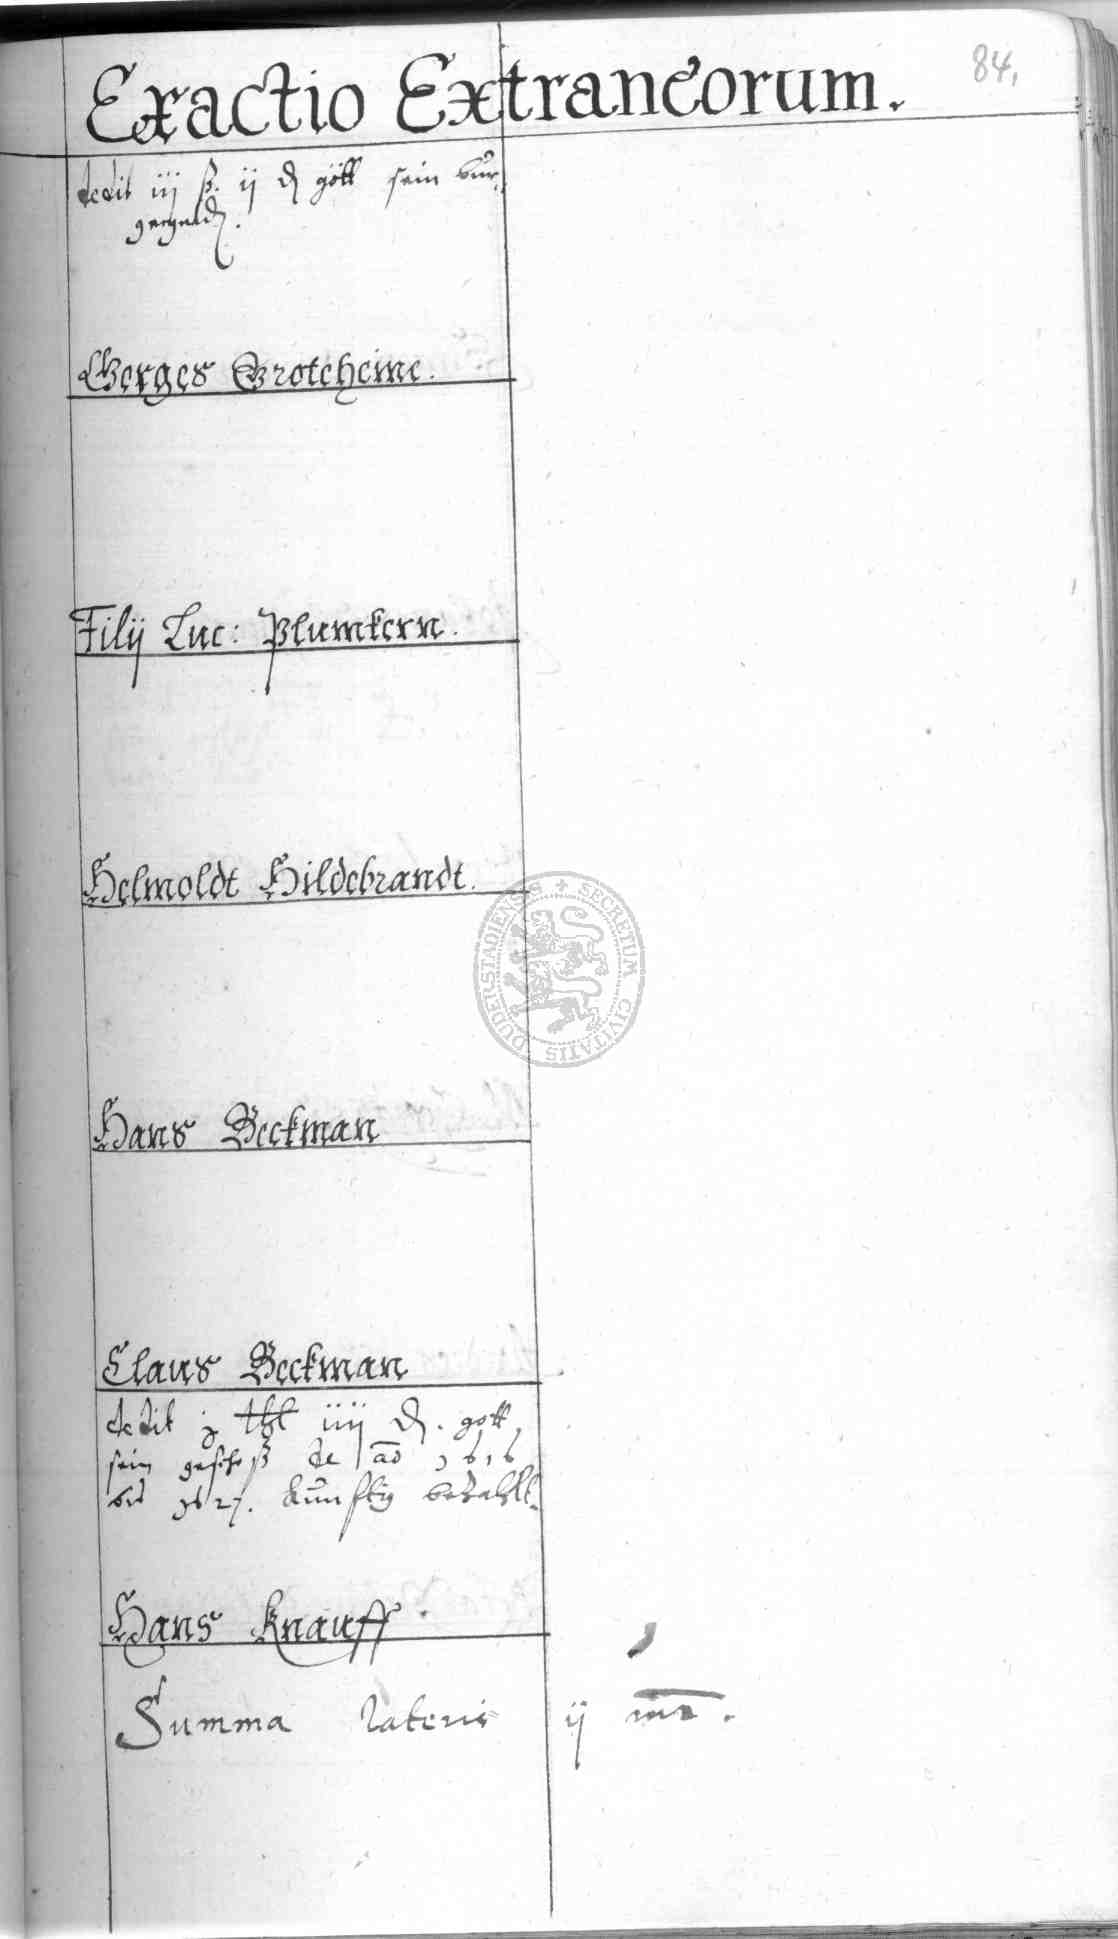 84.
Exactio Extraneorum.
dedit iij ß. ij d gött sein bür
gergeld.
Gerges Groteheine.
Filij Luc: Plumkern.
Helmoldt Hildebrandt.
Hans Beckman
Claus Beckman
dedit j thl iiij d. gött
sein geschoß de ao 1616
bis 1627. künftig bezahlt.
Hans Knauff.
Summa lateris ij mr.
SECRETUM CIVITATIS DUDERSTADIENSIS